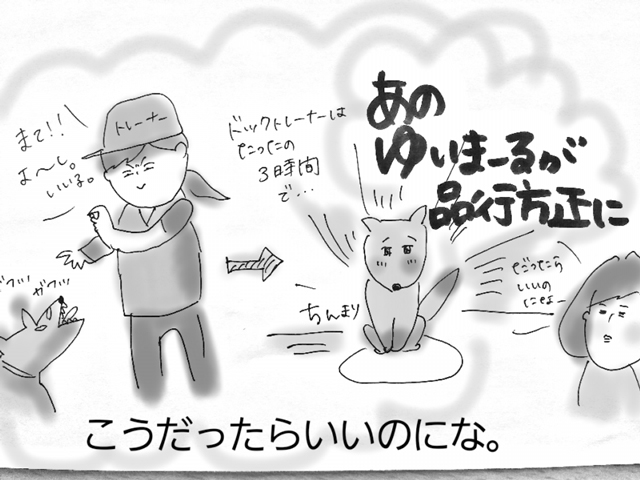 まて!!
よ〜し。
いいよ。
トレーナー
ドックトレーナーは
たったの
3時間
で…
あの
ゆいまーるが
品行方正に
ガウッ
ガウッ
ちんまり
だったら
いいの
にな〜
こうだったらいいのにな。